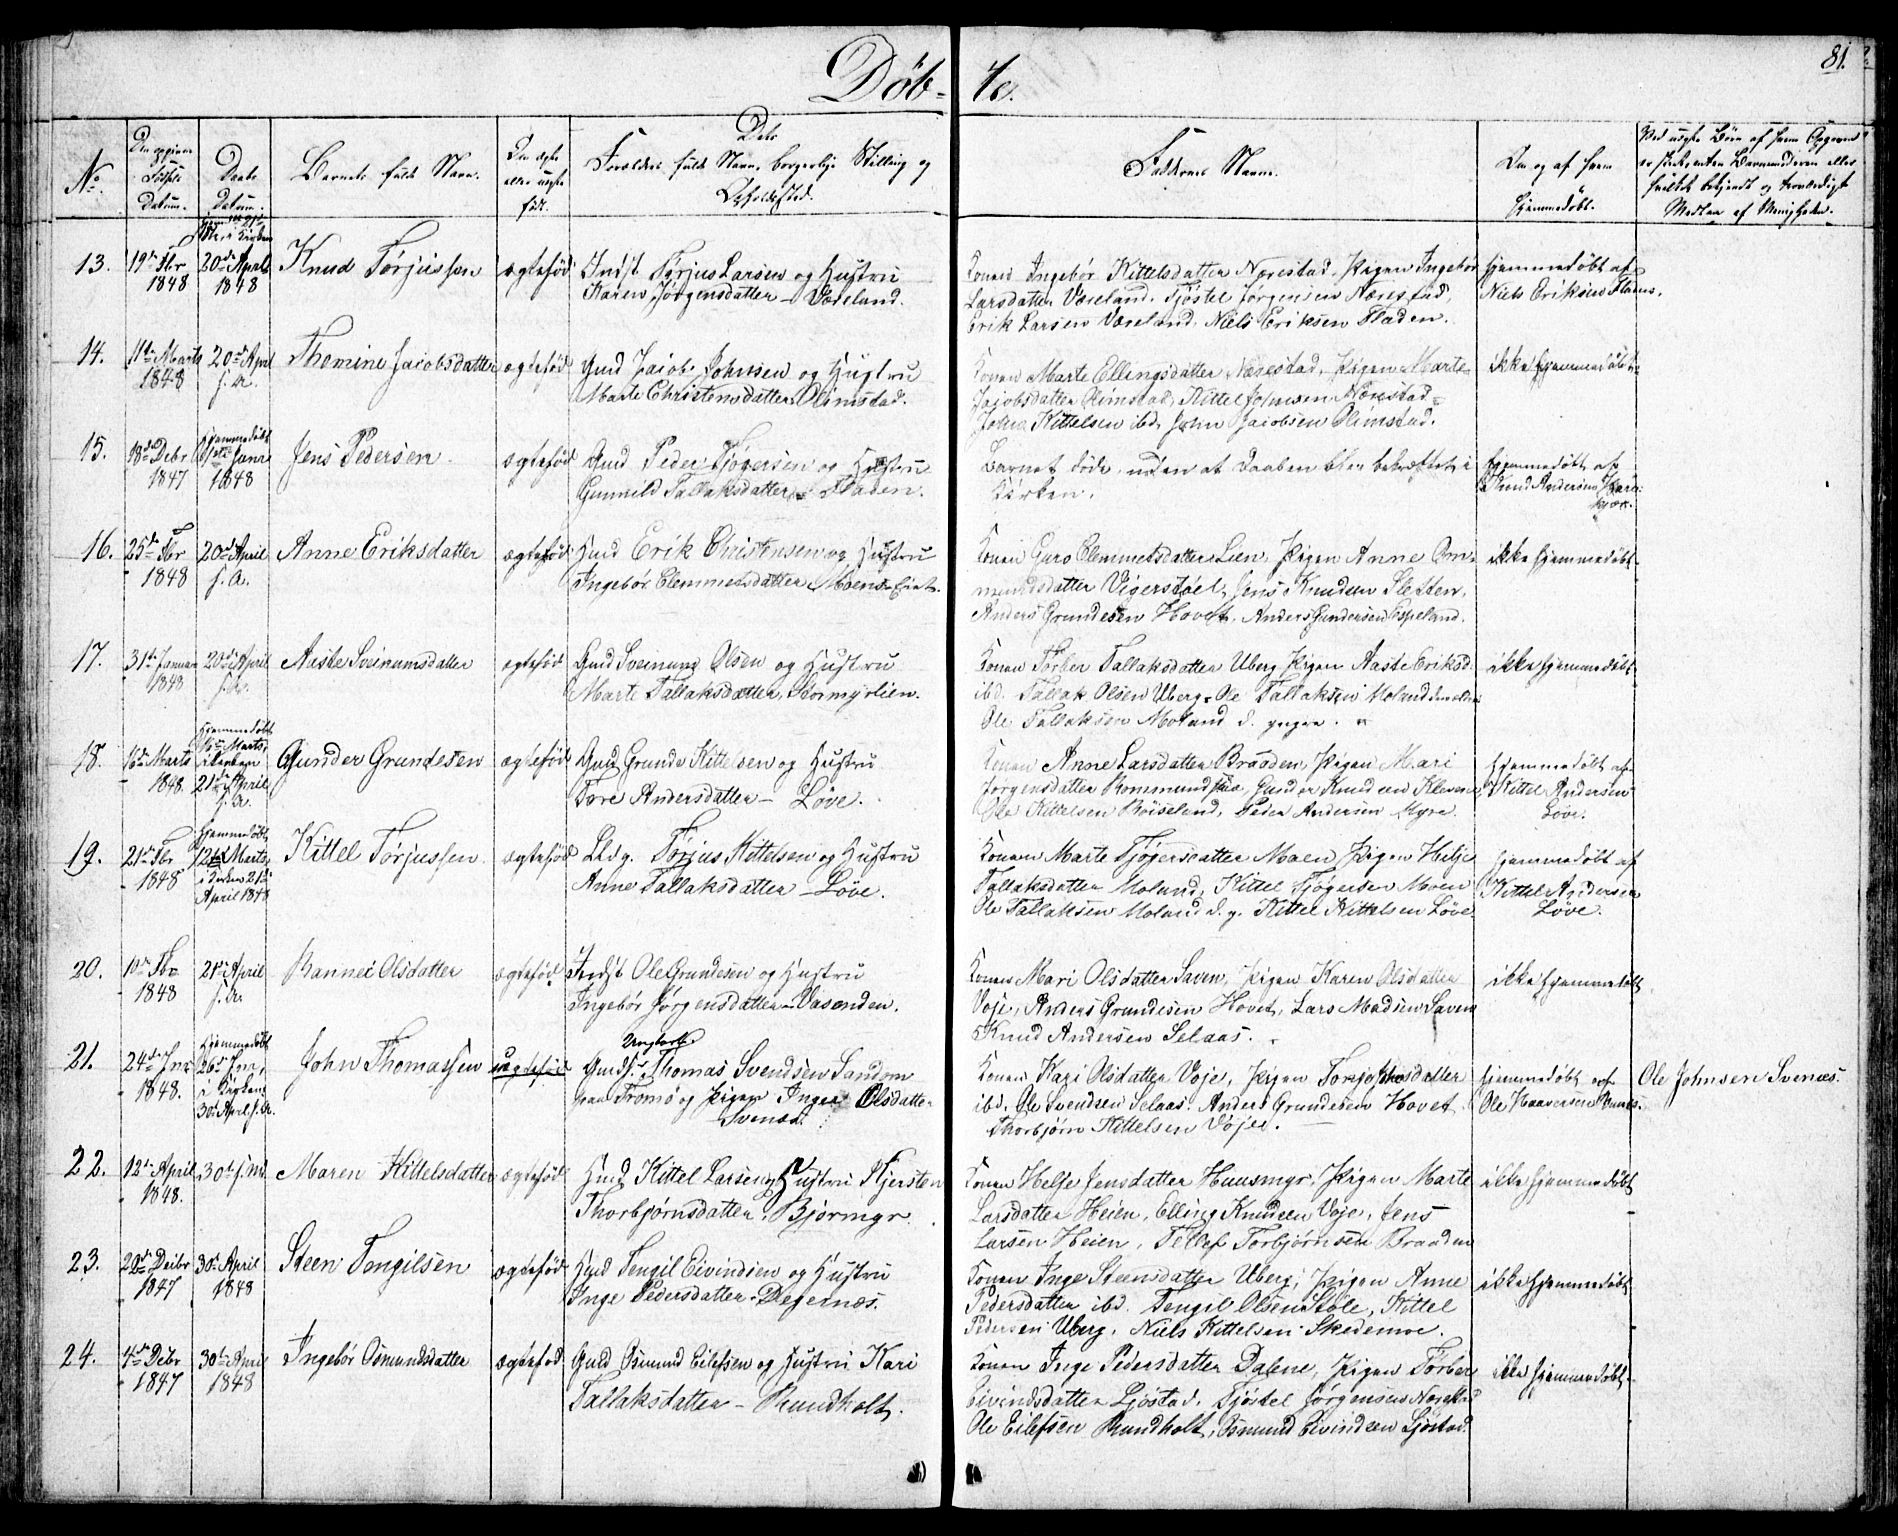 Døb-
te.
81.
No
Den opgivne Fødsels Datum.
Daabs Datum.
Barnets fulde Navn.
Om ægte eller uægte født.
Dets Forældres fulde Navn, borgerlige Stilling og Opholdssted.
Faddernes Navne.
Om og af hvem hjemmedøbt.
Med uægte Børn af hvem Opgaven er skeet, enten Barnemoderen eller hvilket bekjendt og troværdigt Medlem af Menigheden.
13. 19de Fbr 1848 20de April 1848 Knud Tørjussen ægtefød Indst Tørjus Larsen og Hustru
Karen Jørgensdatter – Væreland.
Konen Ingebør Kittelsdatter Nærestad, Pigen Ingebør
Larsdatter Væreland. Tjøstel Jørgensen Nærestad,
Erik Larsen Væreland, Niels Eriksen Fladen.
hjemmedøbt af
Niels Eriksen Fladen.
14. 11te Marts 1848 20de April s. A. Themine Jacobsdatter ægtefød Gmd Jacob Johnsen og Hustru
Marte Christensdatter Olimstad.
Konen Marte Ellingsdatter Nærestad, Pigen Marte
Jacobsdatter Olimstad, Kittel Johnsen Nærestad
John Kittelsen ibd. John Jacobsen Olimstad.
ikke hjemmedøbt
15. 18de Debr 1847 hjemmedøbt Janr 1848 Jens Pedersen ægtefød Gmd Peder Tjøgersen og Hustru
Gunnild Tallaksdatter – Fladen.
Barnet døde, uden at Daaben blev bekræftet i
Kirken.
hjemmedøbt af
Knud Andersen
16. 25de Fbr 1848 20de April s. A. Anne Eriksdatter ægtefød Hmd Erik Christensen og Hustru
Ingebør Clemmetsdatter Moens Eiet.
Konen Guro Clemmetsdatter Lien, Pigen Anne Om-
mundsdatter Vigerstøel, Jens Knudsen Sletten,
Anders Grundesen Hovet, Anders Gundersen Espeland.
ikke hjemmedøbt
17. 31te Januar 1848 20de April s. A. Aaste Sveinumsdatter ægtefød Gmd Sveinung Olsen og Hustru
Marte Tallaksdatter Stormyrlien.
Konen Torber Tallaksdatter Uberg, Pigen Aaste Eriksd.
ibd. Tallak Olsen Uberg, Ole Tallaksen Moland den eldre
Ole Tallaksen Moland d. yngre.
ikke hjemmedøbt
18. 16de Marts 1848 hjemmedøbt Marts, i Kirken 21de April s. A. Gunder Grundesen ægtefød Gmd Grunde Kittelsen og Hustru
Tore Andersdatter – Løve.
Konen Anne Larsdatter Braaden, Pigen Mari
Jorgensdatter Rommundstøe, Gunder Knudsen Kleven
Ole Kittelsen Røiseland, Peder Andersen Myre.
hjemmedøbt af
Kittel Andersen
Løve.
19. 21de Fbr 1848 hjemmedøbt 12te Marts, i Kirken 21de April 1848 Kittel Tørjussen ægtefød Ldg. Tørjus Kittelsen og Hustru
Anne Tallaksdatter – Løve.
Konen Marte Tjøgersdatter Moen, Pigen Helje
Tallaksdatter Moland, Kittel Tjøgersen Moen
Ole Tallaksen Moland d. y. Kittel Kittelsen Løve.
hjemmedøbt af
Kittel Andersen
Løve.
20. Fbr 1848 21de April s. A. Rannei Olsdatter ægtefød Indst Ole Grundesen og Hustru
Ingebør Jørgensdatter – Vasenden.
Konen Mari Olsdatter Saven, Pigen Karen Olsdatter
Voje, Anders Grundesen Hovet, Lars Madsen Saven
Knud Andersen Selaas.
ikke hjemmedøbt
21. 24de Jnr 1848. hjemmedøbt 26de Jnr, i Kirken 30te April s. A. John Thomassen uægtefød Ungkarl
Gmds. Thomas Svendsen Sandom
paa Tromø og Pigen Inger Olsdatter
Svenæs.
Konen Kari Olsdatter Voje, Pigen Torje datter
ibd. Ole Svendsen Selaas. Anders Grundesen Hovet
Thorbjørn Kittelsen Vøje.
hjemmedøbt af
Ole Haaversen
Ole Johnsen Svenæs.
22. 12te April 1848. 30te s. Md. Maren Kittelsdatter ægtefød Hmd Kittel Larsen og Hustru Kjersten
Thorbjørnsdatter, Bjørmyr
Konen Helje Jensdatter Huusmyr, Pigen Marte
Larsdatter Heien, Elling Knudsen Voje, Jens
Larsen Heien, Tellef Torbjørnsen Braaden
ikke hjemmedøbt
23. 22de Debr 1847 30te April 1848 Steen Tengilsen ægtefød Hmd Tengil Eivindsen og Hustru
Inge Pedersdatter – Degernæs.
Konen Inge Steensdatter Uberg, Pigen Anne
Pedersdatter ibd. Tengil Olsen Støle, Kittel
Pedersen Uberg, Niels Kittelsen Skedemoe.
ikke hjemmedøbt
24. 4de Debr 1847 30te April 1848 Ingebør Osmundsdatter ægtefød Gmd Osmund Eilefsen og Hustru Kari
Tallaksdatter – Rundholt.
Konen Inge Pedersdatter Dalene, Pigen Torber
Eivindsdatter Ljøstad, Tjøstel Jørgensen Nærestad
Ole Eilefsen Rundholt, Osmund Eivindsen Ljøstad.
ikke hjemmedøbt